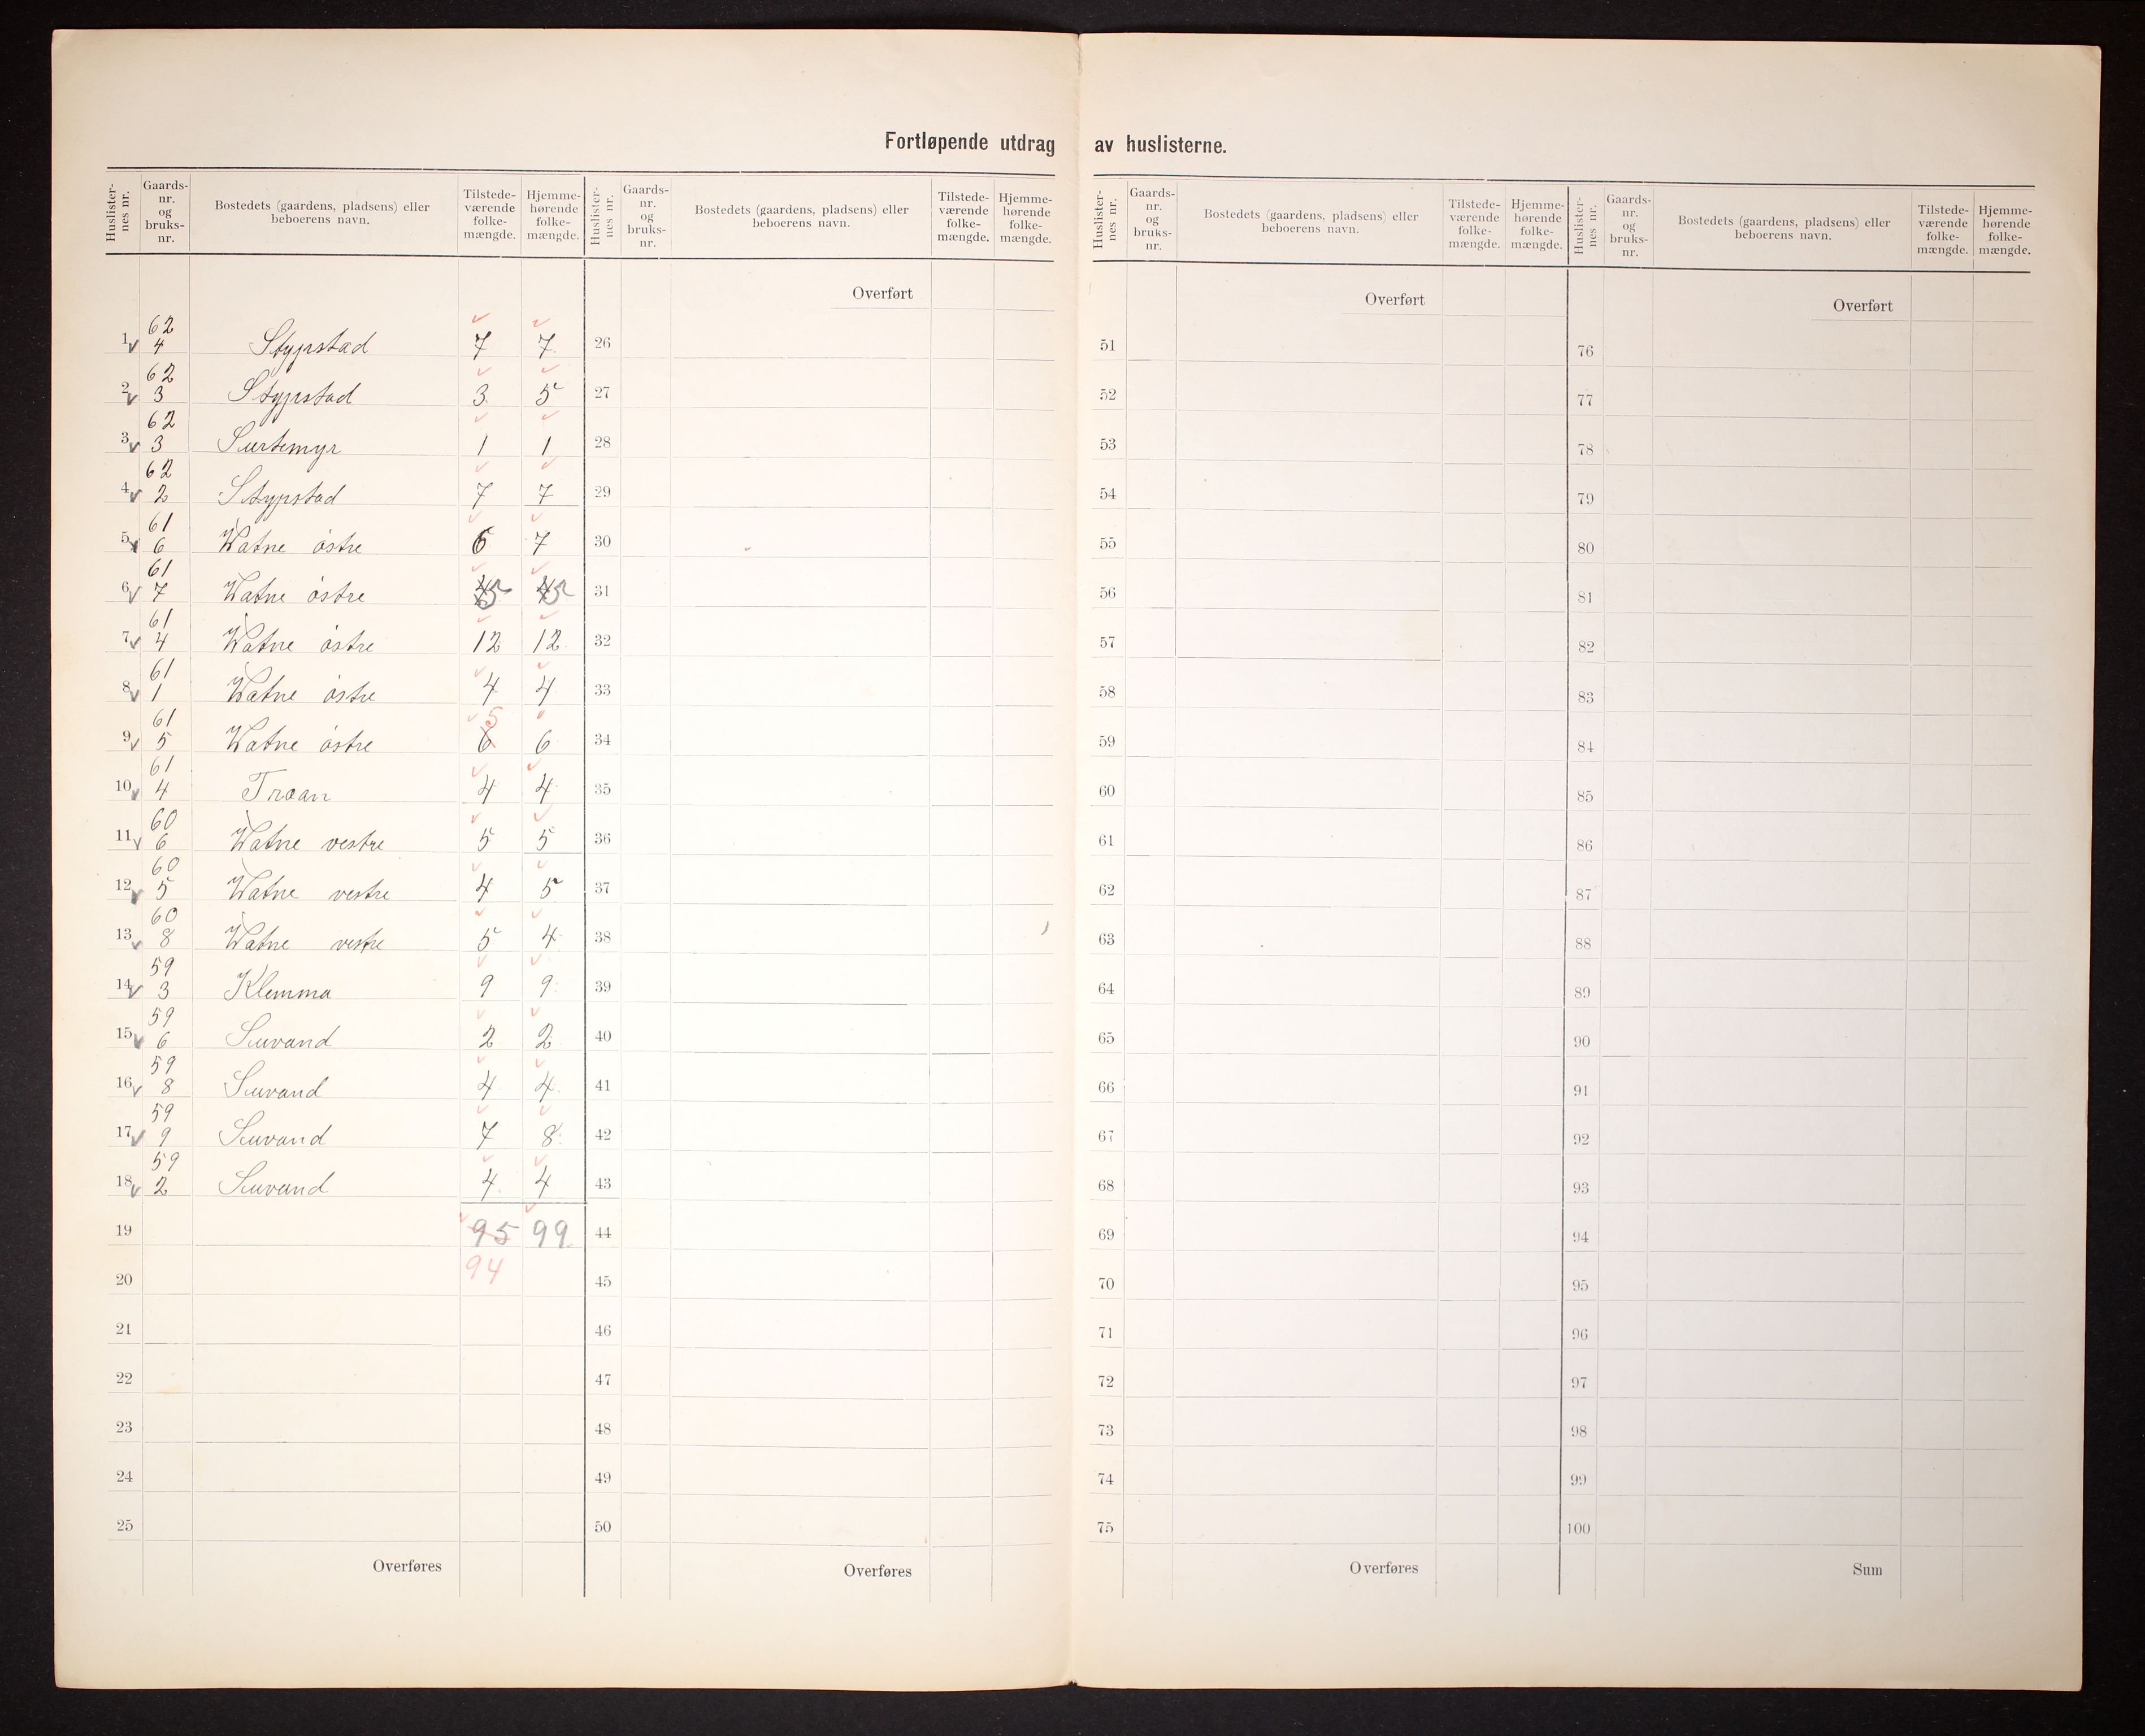 Fortløpende utdrag av huslisterne.
Huslister-nes nr. Gaards-nr. og bruks-nr. Bostedets (gaardens, pladsens) eller beboerens navn. Tilstede-værende folke-mængde. Hjemme-hørende folke-mængde.
1 62 4 Stypstad 7 7
2 62 3 Stypstad 3 5
3 62 3 Surtemyr 1 1
4 62 2 Stypstad 7 7
5 61 6 Watne østre 6 7
6 61 7 Watne østre 5 5
7 61 4 Watne østre 12 12
8 61 1 Watne østre 4 4
9 61 5 Watne østre 6 5 6
10 61 4 Troan 4 4
11 60 6 Watne vestre 5 5
12 60 5 Watne vestre 4 5
13 60 8 Watne vestre 5 4
14 59 3 Klemma 9 9
15 59 6 Suvand 2 2
16 59 8 Suvand 4 4
17 59 9 Suvand 7 8
18 59 2 Suvand 4 4
19 95 99
20 94
21
22
23
24
25
Overføres
Huslister-nes nr. Gaards-nr. og bruks-nr. Bostedets (gaardens, pladsens) eller beboerens navn. Tilstede-værende folke-mængde. Hjemme-hørende folke-mængde.
Overført
26
27
28
29
30
31
32
33
34
35
36
37
38
39
40
41
42
43
44
45
46
47
48
49
50
Overføres
Huslister-nes nr. Gaards-nr. og bruks-nr. Bostedets (gaardens, pladsens) eller beboerens navn. Tilstede-værende folke-mængde. Hjemme-hørende folke-mængde.
Overført
51
52
53
54
55
56
57
58
59
60
61
62
63
64
65
66
67
68
69
70
71
72
73
74
75
Overføres
Huslister-nes nr. Gaards-nr. og bruks-nr. Bostedets (gaardens, pladsens) eller beboerens navn. Tilstede-værende folke-mængde. Hjemme-hørende folke-mængde.
Overført
76
77
78
79
80
81
82
83
84
85
86
87
88
89
90
91
92
93
94
95
96
97
98
99
100
Sum